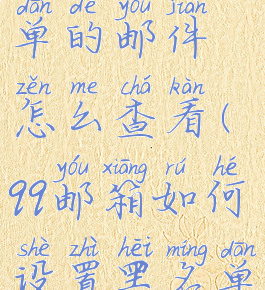 dān de yóu jiàn
单的邮件
zěn me chá kàn
怎么查看(
yóu xiāng rú hé
99邮箱如何
shè zhì hēi míng dān
设置黑名单